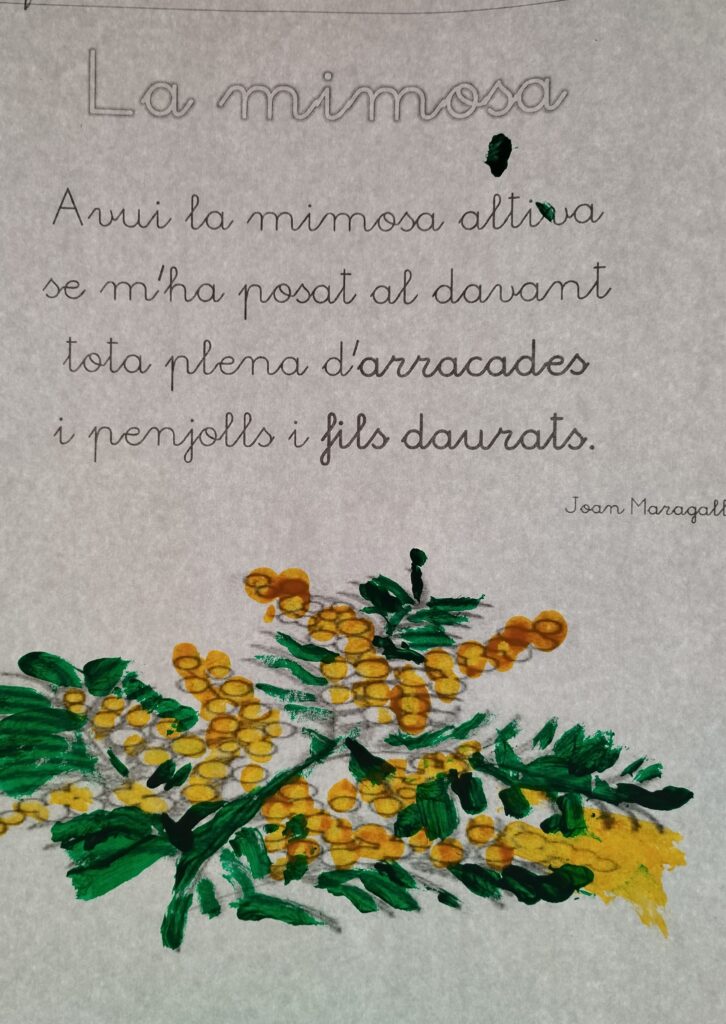 La mimosa
Avui la mimosa altiva
se m'ha posat al davant
tota plena d'arracades
i penjolls i fils daurats.
Joan Maragall